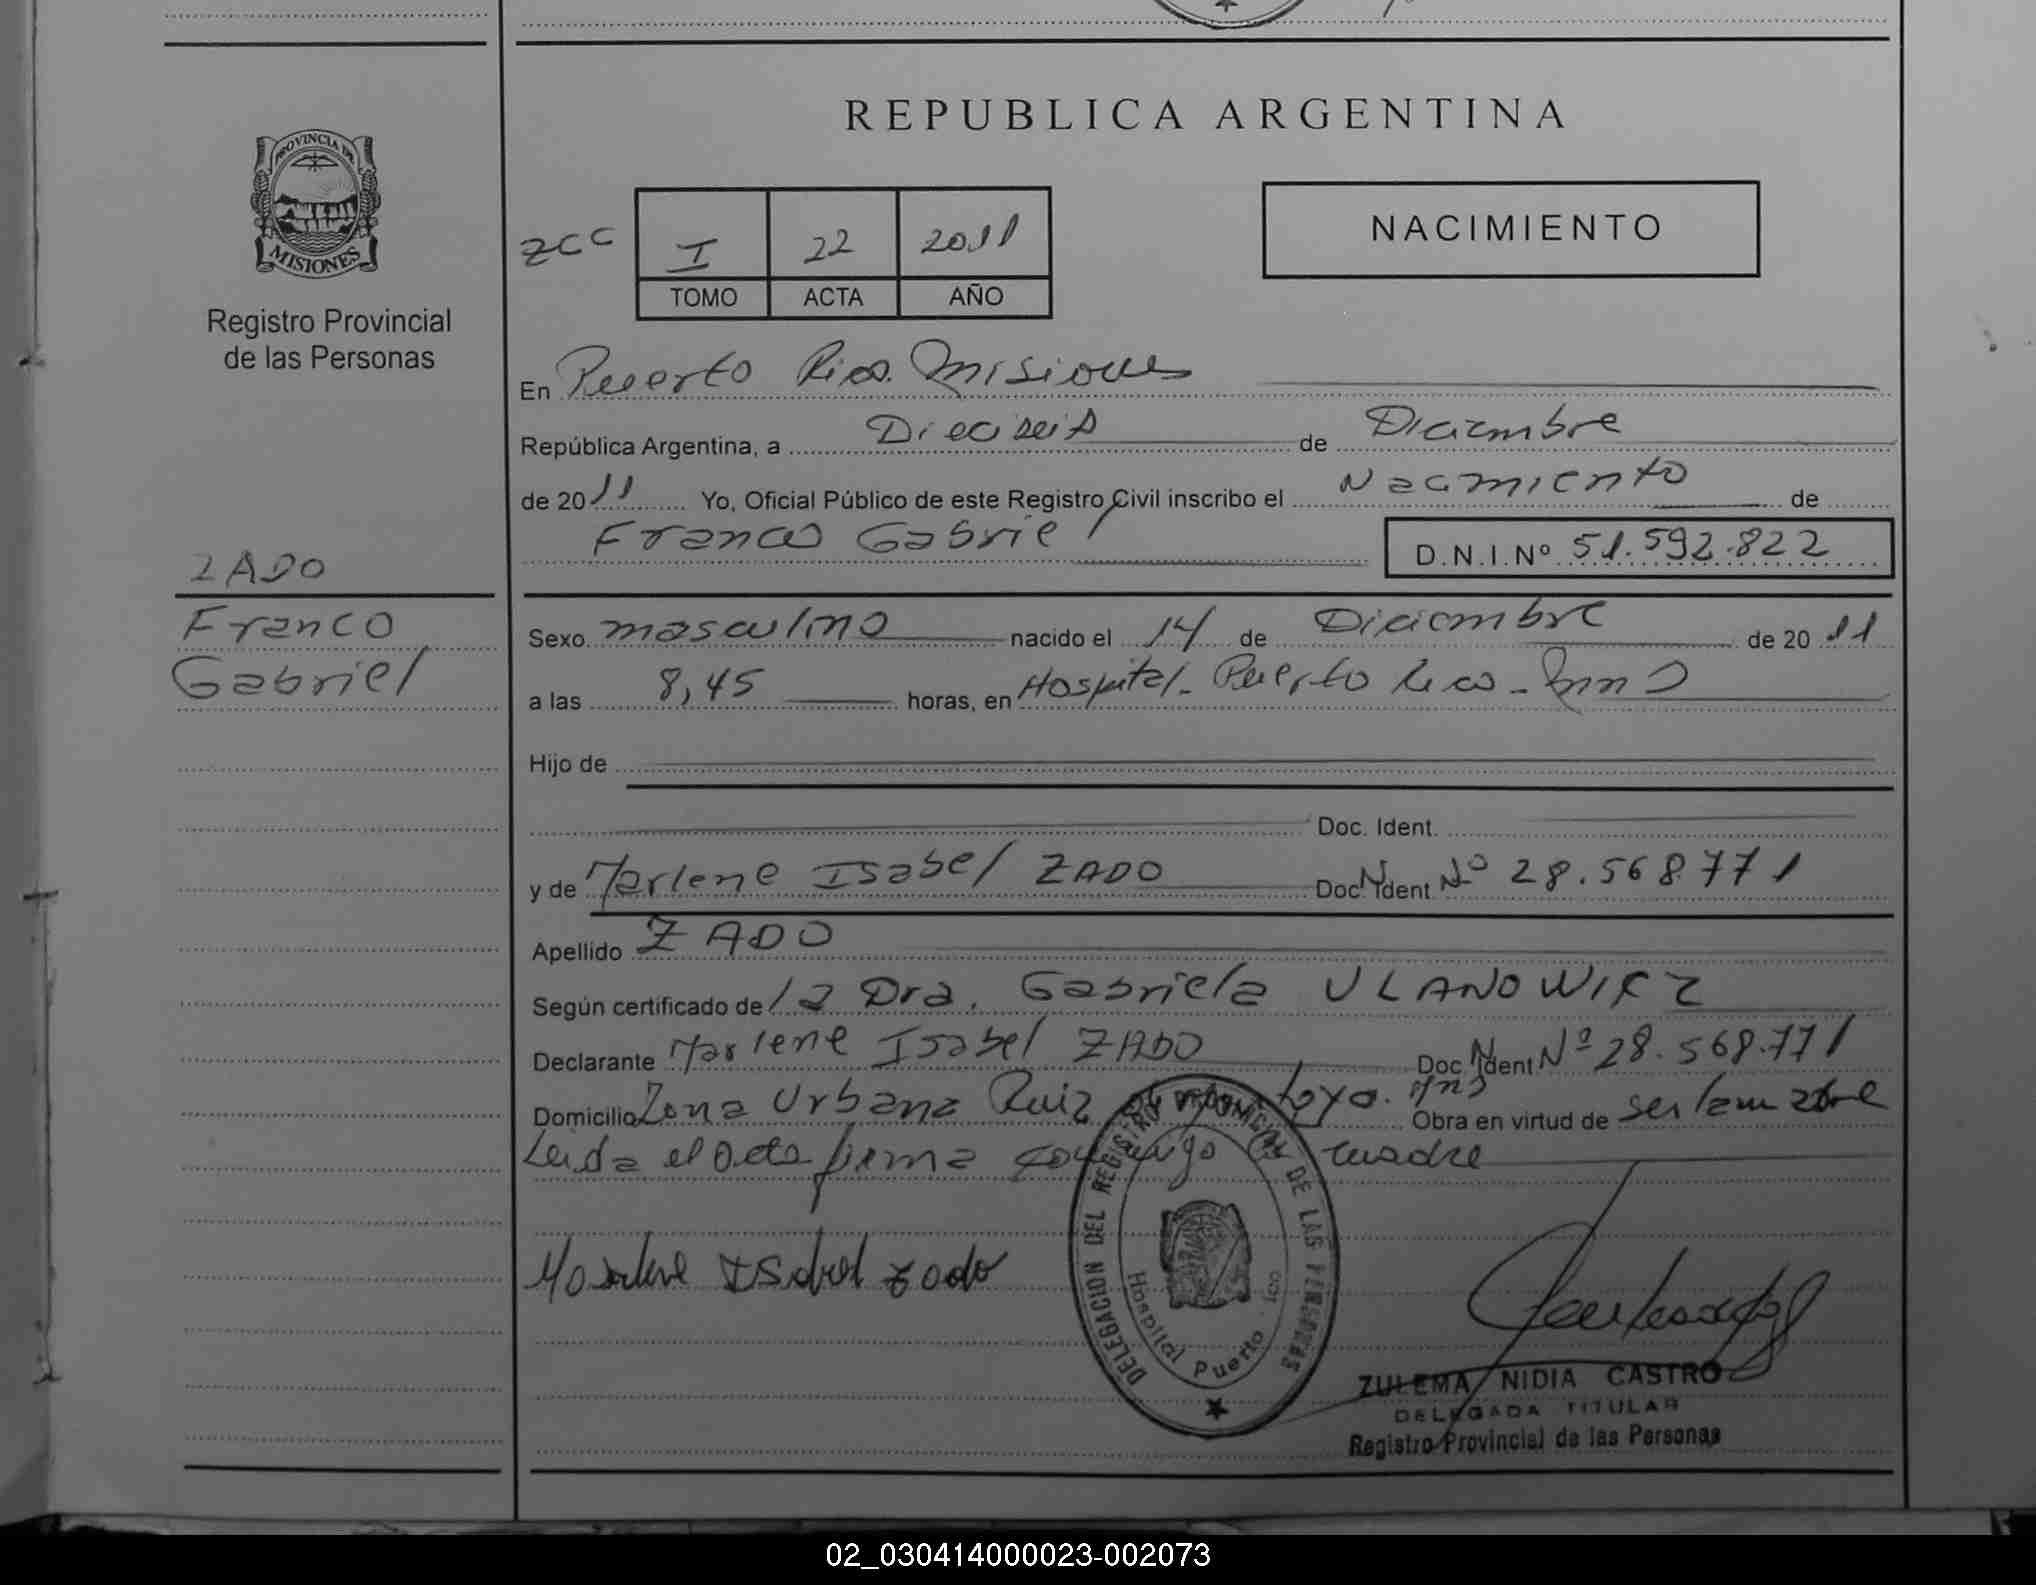 REPUBLICA ARGENTINA
PROVINCIA DE
MISIONES
Registro Provincial
de las Personas
NACIMIENTO
ZCC I 22 2011
TOMO ACTA AÑO
En Puerto Rico. Misiones
República Argentina, a Dieciseis de Diciembre
de 2011 Yo, Oficial Público de este Registro Civil inscribo el Nacimiento de
Franco Gabriel D.N.I.Nº 51.592.822
ZADO
Franco
Gabriel
Sexo masculino nacido el 14 de Diciembre de 2011
a las 8,45 horas, en Hospital - Puerto Rico - Mns
Hijo de
Doc. Ident.
y de Marlene Isabel ZADO Doc. Ident. Nº 28.568.771
Apellido ZADO
Según certificado de la Dra. Gabriela ULANOWICZ
Declarante Marlene Isabel ZADO Doc. Ident Nº 28.568.771
Domicilio Zona Urbana Ruiz de Montoya. Mns Obra en virtud de ser la madre
Leida el acta firma conmigo la madre
Marlene Isabel Zado
DELEGACION DEL REGISTRO PROVINCIAL DE LAS PERSONAS
Hospital Puerto Rico
ZULEMA NIDIA CASTRO
DELEGADA TITULAR
Registro Provincial de las Personas
02_030414000023-002073